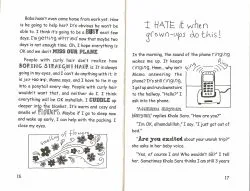 Baba hasn't even come home from work yet. How
is he going to help her? It's obvious he won't be
able to. I think it's going to be a BUSY next few
days. I'm getting all
and now that maybe two
days is not enough time. Oh, I hope everything is
OK and we don't MISS OUR PLANE.
People with curly hair don't realize how
BORING STRAIGHT HAIR IS! It is always
going in my eyes, and I can't do anything with it! It
is just
, and I have to tie it up
into a ponytail every day. People with curly hair
wouldn't want that, and neither do I. I think
everything will be OK inshallah. I CUDDLE up
deeper into the blanket. It's warm and cozy and
smells of
Maybe if I go to sleep now
and wake up early, I can help with the packing. I
close my eyes.
16
I HATE it when
grown-ups do this!
In the morning, the sound of the phone ringing
wakes me up. It keeps
ringing. Hmm, why isn't
Mama answering the
phone? It's still ringing.
I get up and run downstairs
to the hallway. "Hello?" I
ask into the phone.
replies Khala Sara. "How are you?"
"I'm OK, alhamdulillah," I say. "I just got out of
bed."
"Are you excited about your umrah trip?"
she asks in her baby voice.
"Yes, of course I am! Who wouldn't be?" I tell
her. Sometimes Khala Sara thinks I am still 3 years
17